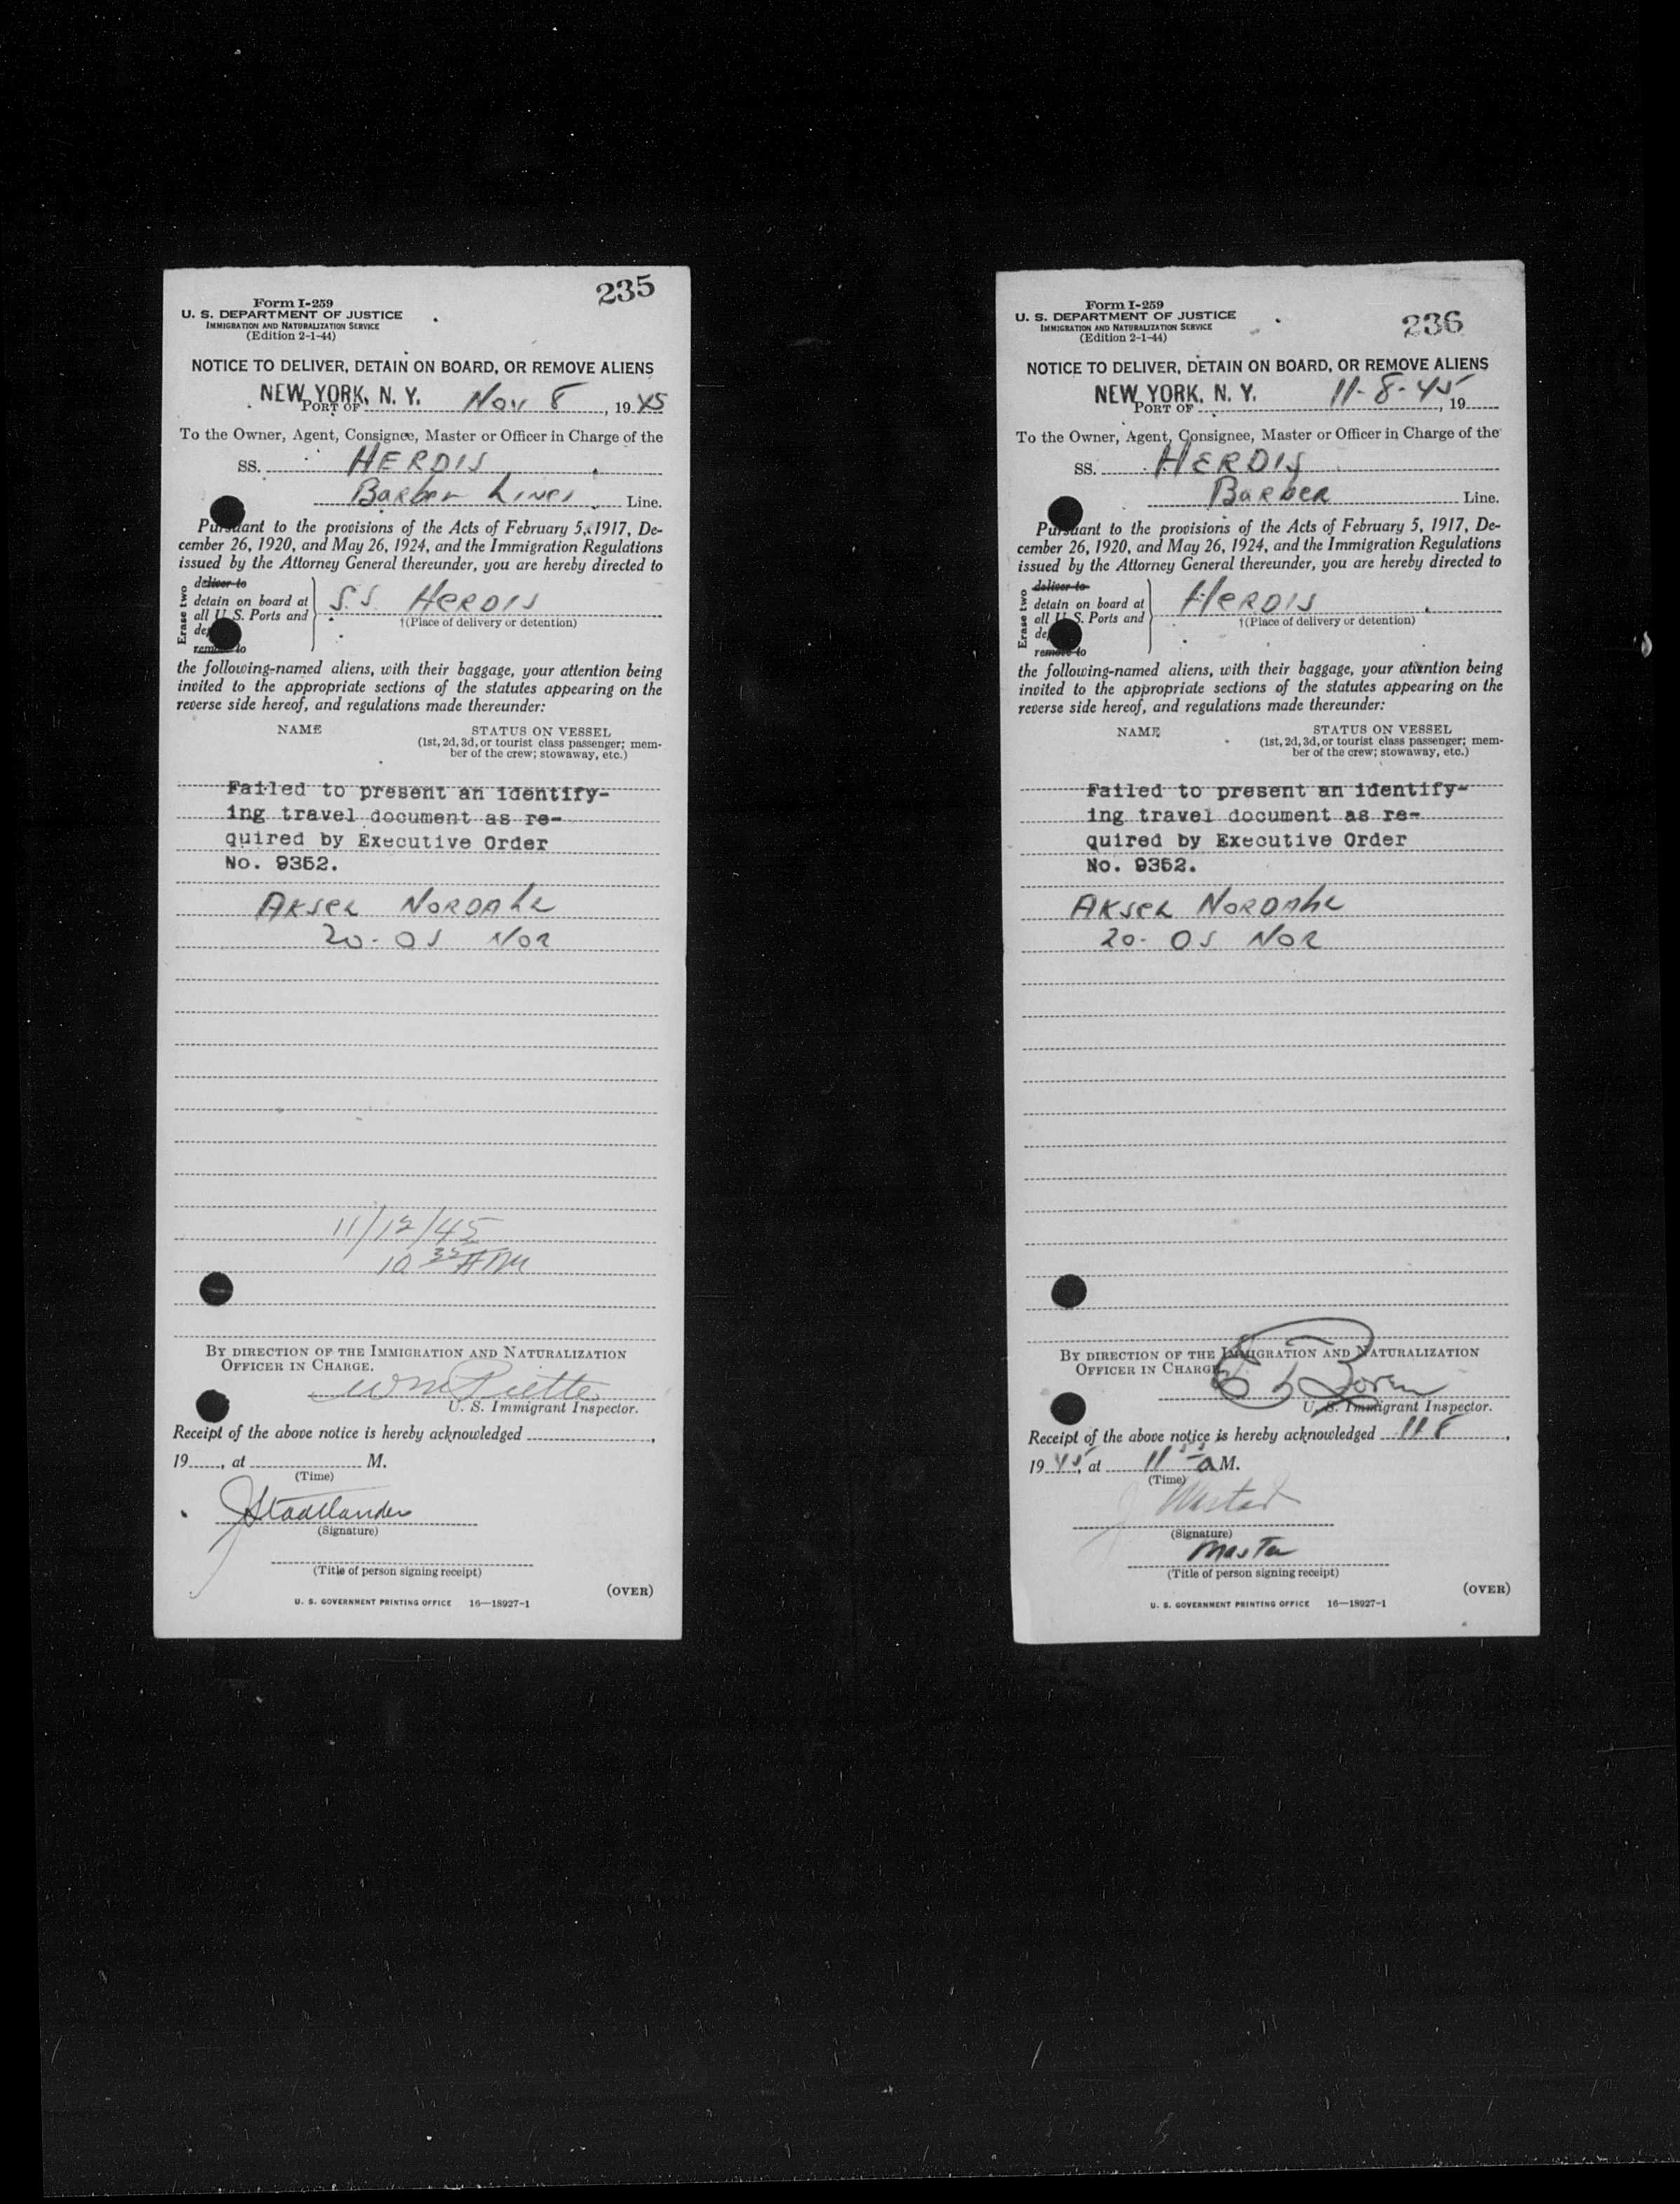 235
Form I-259
U. S. DEPARTMENT OF JUSTICE
IMMIGRATION AND NATURALIZATION SERVICE
(Edition 2-1-44)
NOTICE TO DELIVER, DETAIN ON BOARD, OR REMOVE ALIENS
NEW YORK, N. Y. Nov 8, 1945
PORT OF
To the Owner, Agent, Consignee, Master or Officer in Charge of the
SS. HERDIS
Barber Lines Line.
Pursuant to the provisions of the Acts of February 5, 1917, De-
cember 26, 1920, and May 26, 1924, and the Immigration Regulations
issued by the Attorney General thereunder, you are hereby directed to
Erase two
deliver to
detain on board at S.S. HERDIS
all U. S. Ports and
†(Place of delivery or detention)
remove to
the following-named aliens, with their baggage, your attention being
invited to the appropriate sections of the statutes appearing on the
reverse side hereof, and regulations made thereunder:
NAME STATUS ON VESSEL
(1st, 2d, 3d, or tourist class passenger; mem-
ber of the crew; stowaway, etc.)
Failed to present an identify-
ing travel document as re-
quired by Executive Order
No. 9352.
AKSEL NORDAHL
20- OS NOR
11/12/45
10 35 AM
BY DIRECTION OF THE IMMIGRATION AND NATURALIZATION
OFFICER IN CHARGE.
Wm Piette
U. S. Immigrant Inspector.
Receipt of the above notice is hereby acknowledged ,
19 , at M.
(Time)
J Stadtlander
(Signature)
(Title of person signing receipt)
(OVER)
U. S. GOVERNMENT PRINTING OFFICE 16—18927-1
236
Form I-259
U. S. DEPARTMENT OF JUSTICE
IMMIGRATION AND NATURALIZATION SERVICE
(Edition 2-1-44)
NOTICE TO DELIVER, DETAIN ON BOARD, OR REMOVE ALIENS
NEW YORK, N. Y. 11-8-45, 19
PORT OF
To the Owner, Agent, Consignee, Master or Officer in Charge of the
SS. HERDIS
Barber Line.
Pursuant to the provisions of the Acts of February 5, 1917, De-
cember 26, 1920, and May 26, 1924, and the Immigration Regulations
issued by the Attorney General thereunder, you are hereby directed to
Erase two
deliver to
detain on board at HERDIS
all U. S. Ports and
†(Place of delivery or detention)
remove to
the following-named aliens, with their baggage, your attention being
invited to the appropriate sections of the statutes appearing on the
reverse side hereof, and regulations made thereunder:
NAME STATUS ON VESSEL
(1st, 2d, 3d, or tourist class passenger; mem-
ber of the crew; stowaway, etc.)
Failed to present an identify-
ing travel document as re-
quired by Executive Order
No. 9352.
AKSEL NORDAHL
20- OS NOR
BY DIRECTION OF THE IMMIGRATION AND NATURALIZATION
OFFICER IN CHARGE
U. S. Immigrant Inspector.
Receipt of the above notice is hereby acknowledged 11-8,
1945, at 11 a M.
(Time)
(Signature)
Master
(Title of person signing receipt)
(OVER)
U. S. GOVERNMENT PRINTING OFFICE 16—18927-1